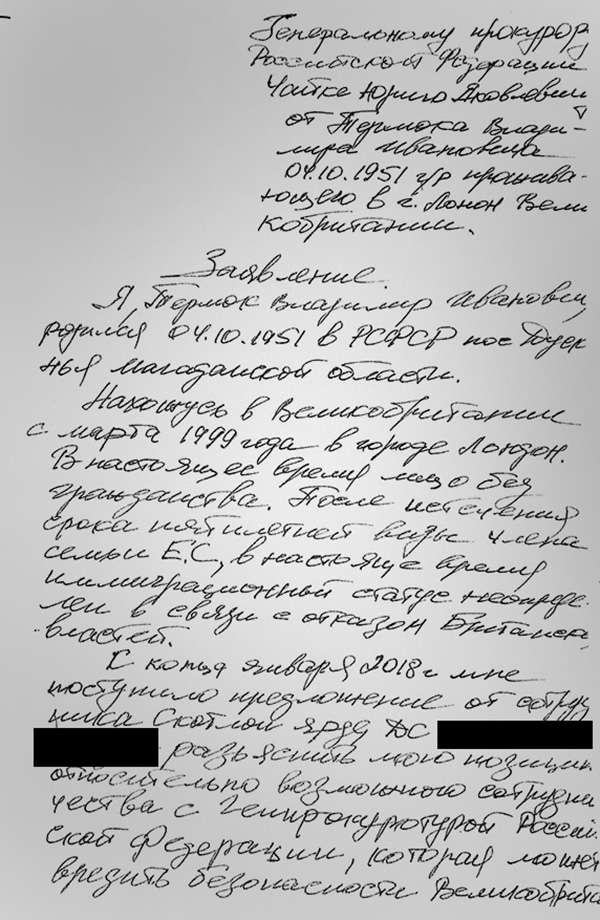 Генеральному прокурору
Российской Федерации
Чайке Юрию Яковлевич
у
от Термока Влади-
мира Ивановича
04.10.1951 г/р прожива-
ющего в г. Лонон Вели
кобритании.
Заявление.
Я, Термок Владимир Иванови,
родился 04.10.1951 в РСФСР пос
нья Магаданской области.
Нахожусь в Великобритании
с марта 1999 года в городе Лондон.
В настоящее время лицо без
гражданства. После истечения
срока пятилетней визы члена
семьи Е.С, в настояще время
иммиграционный статус неопреде-
лен в связи с отказом Британск,
властей.
С конца января 2018 г мне
поступило предложение от сотруд
ника Скотлон ярда ДС
разъяснить мою позици
относительно возможного сотрудни
чества с Генпрокуротурой России
ской Федерации, которая может
вредить безопасности Великобрита